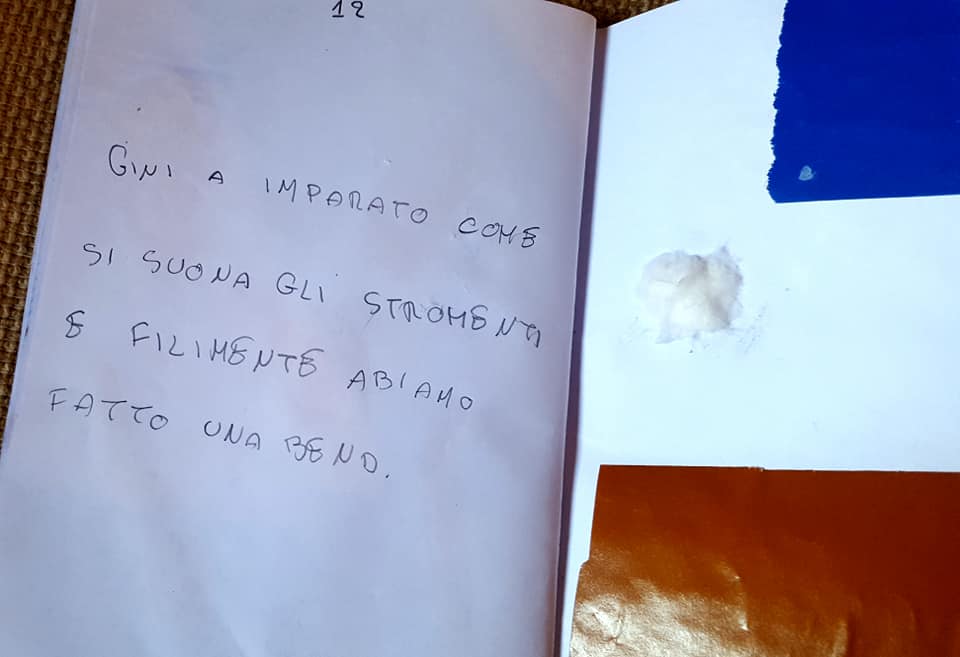 12
GINI A IMPARATO COME
SI SUONA GLI STROMENTI
E FILIMENTE ABIAMO
FATTO UNA BEND.